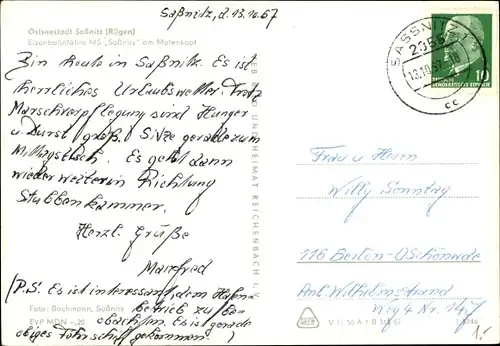 Saßnitz, d. 13.10.67
Ostseestadt Saßnitz (Rügen)
Eisenbahnfähre MS „Saßnitz" am Molenkopf
Bin heute in Saßnitz. Es ist
herrliches Urlaubswetter. Trotz
Marschverpflegung sind Hunger
u. Durst groß! Sitze gerade zum
Mittagstisch. Es geht dann
wieder weiter in Richtung
Stubbenkammer.
Herzl. Grüße
Manfred
(P.S. Es ist interessant, dem Hafen-
betrieb zu be-
obachten. Es ist gerade
obiges Fährschiff gekommen.)
Foto: Bachmann, Saßnitz
EVP MDN -,20
BILD UND HEIMAT REICHENBACH I. V.
SASSNITZ 1
2355
13.10.67-18
cc
DEUTSCHE
DEMOKRATISCHE REPUBLIK
10
Frau u. Herrn
Willy Sonntag
116 Berlin-OSchönwde
An d. Wilhelmstrand
Weg 4 Nr. 147
V 11 50 A 1 B
1,-